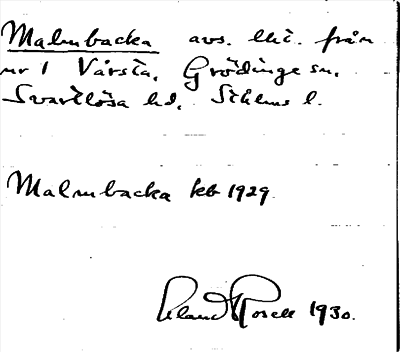 Malmbacka avs. lht. från
nr 1 Vårsta, Grödinge sn,
Svartlösa hd, Sthlms l.
Malmbacka kb 1929
Rosell 1930.